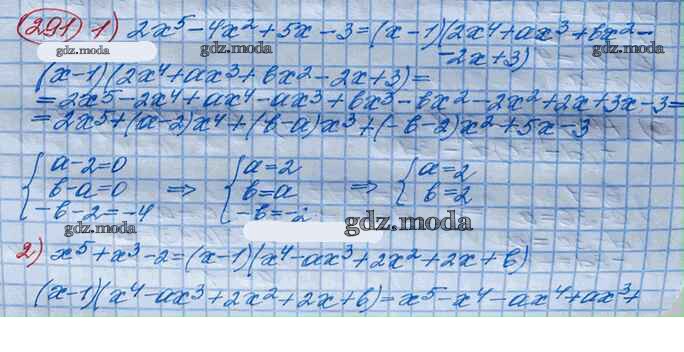 291 1) 2x⁵-4x²+5x-3=(x-1)(2x⁴+ax³+bx²-
gdz.moda gdz.moda gdz.moda
-2x+3)
(x-1)(2x⁴+ax³+bx²-2x+3)=
=2x⁵-2x⁴+ax⁴-ax³+bx³-bx²-2x²+2x+3x-3=
=2x⁵+(a-2)x⁴+(b-a)x³+(-b-2)x²+5x-3
{a-2=0 {a=2 {a=2
{b-a=0 => {b=a => {b=2
{-b-2=-4 {-b=-2
gdz.moda gdz.moda
2) x⁵+x³-2=(x-1)(x⁴-ax³+2x²+2x+b)
(x-1)(x⁴-ax³+2x²+2x+b)=x⁵-x⁴-ax⁴+ax³+